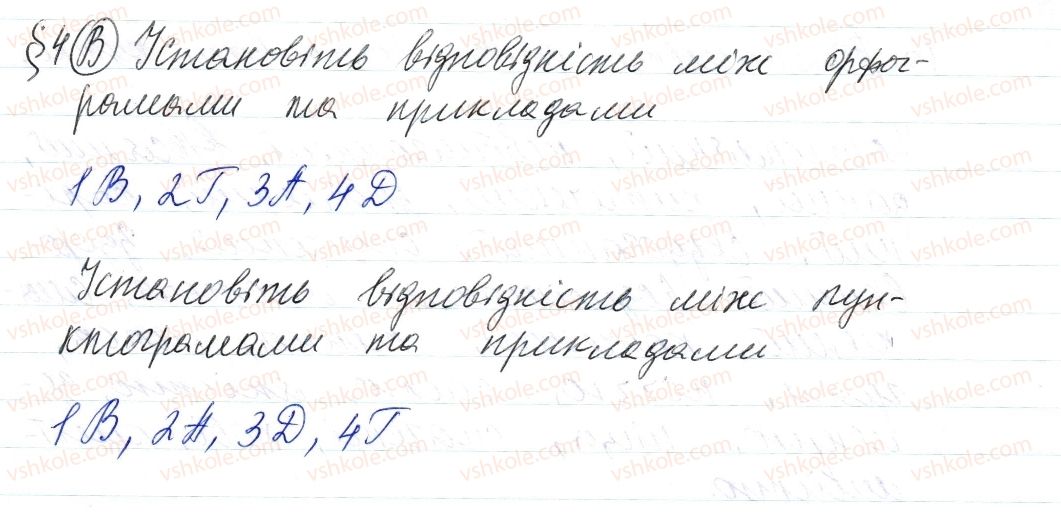 §4 В Установіть відповідність між орфог-
рамами та прикладами
1 В, 2 Г, 3 А, 4 Д
Установіть відповідність між пун-
ктограмами та прикладами
1 В, 2 А, 3 Д, 4 Г